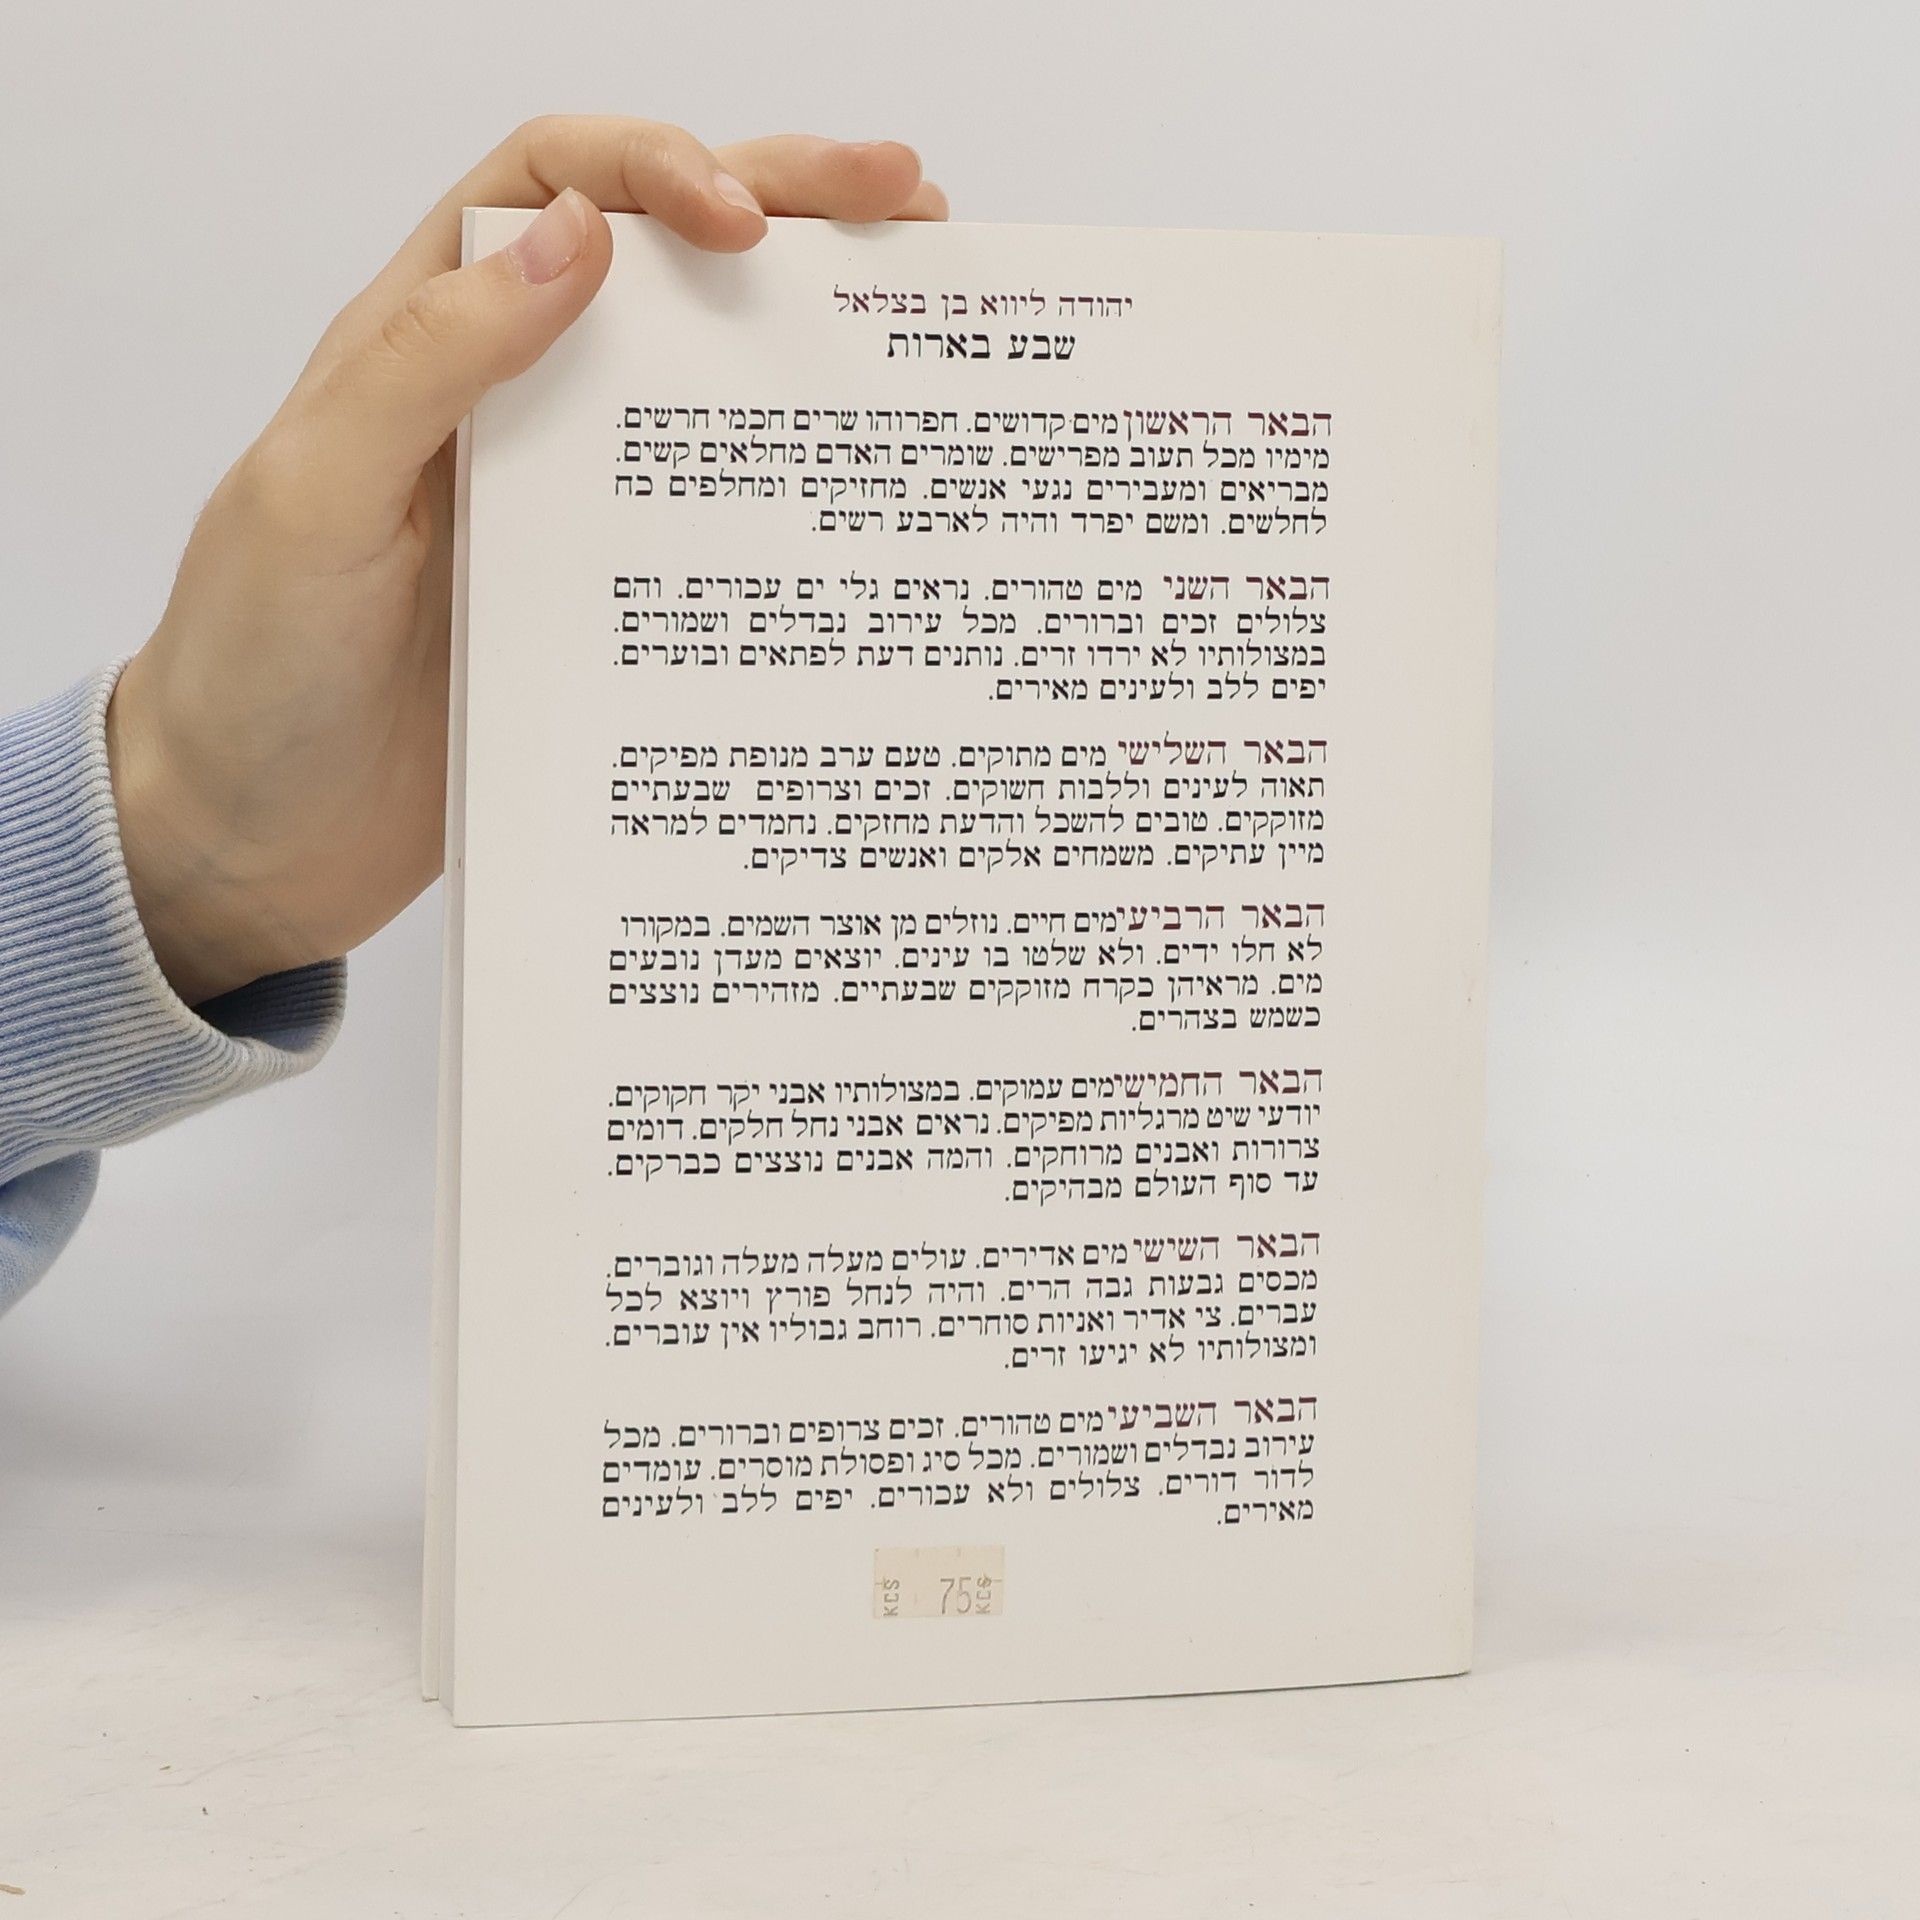 יהודה ליווא בן בצלאל
שבע בארות
הבאר הראשון מים קדושים. חפרוהו שרים חכמי חרשים.
מימיו מכל תעוב מפרישים. שומרים האדם מחלאים קשים.
מבריאים ומעבירים נגעי אנשים. מחזיקים ומחלפים כח
לחלשים. ומשם יפרד והיה לארבע רשים.
הבאר השני מים טהורים. נראים גלי ים עכורים. והם
צלולים זכים וברורים. מכל עירוב נבדלים ושמורים.
במצולותיו לא ירדו זרים. נותנים דעת לפתאים ובוערים.
יפים ללב ולעינים מאירים.
הבאר השלישי מים מתוקים. טעם ערב מנופת מפיקים.
תאוה לעינים וללבות חשוקים. זכים וצרופים שבעתיים
מזוקקים. טובים להשכל והדעת מחזקים. נחמדים למראה
מיין עתיקים. משמחים אלקים ואנשים צדיקים.
הבאר הרביעי מים חיים. נוזלים מן אוצר השמים. במקורו
לא חלו ידים. ולא שלטו בו עינים. יוצאים מעדן נובעים
מים. מראיהן כקרח מזוקקים שבעתיים. מזהירים נוצצים
כשמש בצהרים.
הבאר החמישי מים עמוקים. במצולותיו אבני יקר חקוקים.
יודעי שיט מרגליות מפיקים. נראים אבני נחל חלקים. דומים
צרורות ואבנים מרוחקים. והמה אבנים נוצצים כברקים.
עד סוף העולם מבהיקים.
הבאר השישי מים אדירים. עולים מעלה מעלה וגוברים.
מכסים גבעות גבה הרים. והיה לנחל פורץ ויוצא לכל
עברים. צי אדיר ואניות סוחרים. רוחב גבוליו אין עוברים.
ומצולותיו לא יגיעו זרים.
הבאר השביעי מים טהורים. זכים צרופים וברורים. מכל
עירוב נבדלים ושמורים. מכל סיג ופסולת מוסרים. עומדים
לדור דורים. צלולים ולא עכורים. יפים ללב ולעינים
מאירים.
KČS 75 KČS